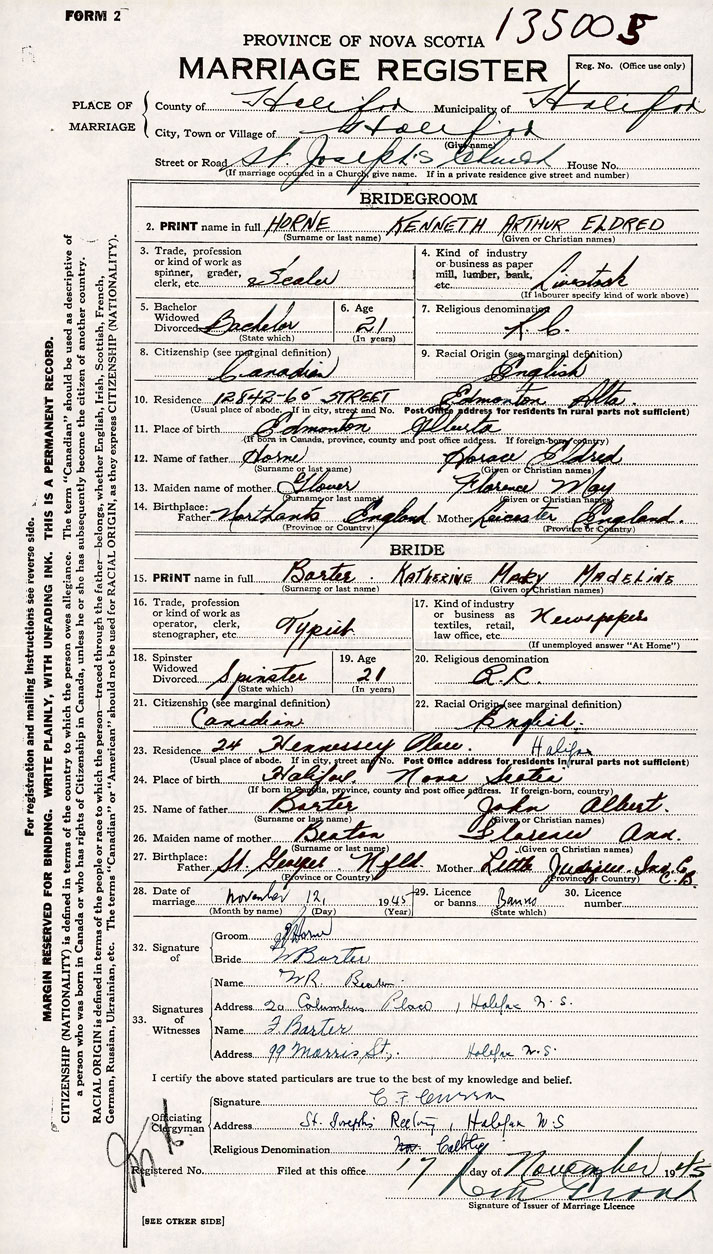 FORM 2
135005
PROVINCE OF NOVA SCOTIA
MARRIAGE REGISTER
Reg. No. (Office use only)
PLACE OF MARRIAGE
County of Halifax Municipality of Halifax
City, Town or Village of Halifax
(Give name)
Street or Road St. Joseph's Church House No.
(If marriage occurred in a Church, give name. If in a private residence give street and number)
BRIDEGROOM
2. PRINT name in full HORNE KENNETH ARTHUR ELDRED
(Surname or last name) (Given or Christian names)
3. Trade, profession or kind of work as spinner, grader, clerk, etc. Scaler
4. Kind of industry or business as paper mill, lumber, bank, etc. Livestock
(If labourer specify kind of work above)
5. Bachelor Widowed Divorced Bachelor
(State which)
6. Age 21
(In years)
7. Religious denomination R.C.
8. Citizenship (see marginal definition) Canadian
9. Racial Origin (see marginal definition) English
10. Residence 12842-65 STREET Edmonton Alta.
(Usual place of abode. If in city, street and No. Post Office address for residents in rural parts not sufficient)
11. Place of birth Edmonton Alberta
(If born in Canada, province, county and post office address. If foreign-born, country)
12. Name of father Horne Horace Eldred
(Surname or last name) (Given or Christian names)
13. Maiden name of mother Glover Florence May
(Surname or last name) (Given or Christian names)
14. Birthplace: Father Northants England Mother Leicester England.
(Province or Country) (Province or Country)
BRIDE
15. PRINT name in full Barter. KATHERINE MARY MADELINE
(Surname or last name) (Given or Christian names)
16. Trade, profession or kind of work as operator, clerk, stenographer, etc. Typist
17. Kind of industry or business as textiles, retail, law office, etc. Newspapers
(If unemployed answer "At Home")
18. Spinster Widowed Divorced Spinster
(State which)
19. Age 21
(In years)
20. Religious denomination R.C.
21. Citizenship (see marginal definition) Canadian
22. Racial Origin (see marginal definition) English.
23. Residence 24 Hennessey Place. Halifax
(Usual place of abode. If in city, street and No. Post Office address for residents in rural parts not sufficient)
24. Place of birth Halifax Nova Scotia
(If born in Canada, province, county and post office address. If foreign-born, country)
25. Name of father Barter John Albert.
(Surname or last name) (Given or Christian names)
26. Maiden name of mother Beaton Florence Ann.
(Surname or last name) (Given or Christian names)
27. Birthplace: Father St. Georges Nfld. Mother Little Judique Inv. Co. C.B.
(Province or Country) (Province or Country)
28. Date of marriage November 12, 1945
(Month by name) (Day) (Year)
29. Licence or banns Banns
(State which)
30. Licence number
32. Signature of
Groom Horne
Bride Barter
33. Signatures of Witnesses
Name Beaton
Address 20 Columbus Place, Halifax N.S.
Name F. Barter
Address 99 Morris St., Halifax N.S.
I certify the above stated particulars are true to the best of my knowledge and belief.
Officiating Clergyman
Signature C. F.
Address St. Joseph's Rectory, Halifax N.S
Religious Denomination
Registered No. Filed at this office 17 day of November 1945
Signature of Issuer of Marriage Licence
[SEE OTHER SIDE]
For registration and mailing instructions see reverse side.
MARGIN RESERVED FOR BINDING. WRITE PLAINLY, WITH UNFADING INK. THIS IS A PERMANENT RECORD.
CITIZENSHIP (NATIONALITY) is defined in terms of the country to which the person owes allegiance. The term "Canadian" should be used as descriptive of
a person who was born in Canada or who has rights of Citizenship in Canada, unless he or she has subsequently become the citizen of another country.
RACIAL ORIGIN is defined in terms of the people or race to which the person—traced through the father—belongs, whether English, Irish, Scottish, French,
German, Russian, Ukrainian, etc. The terms "Canadian" or "American" should not be used for RACIAL ORIGIN, as they express CITIZENSHIP (NATIONALITY).